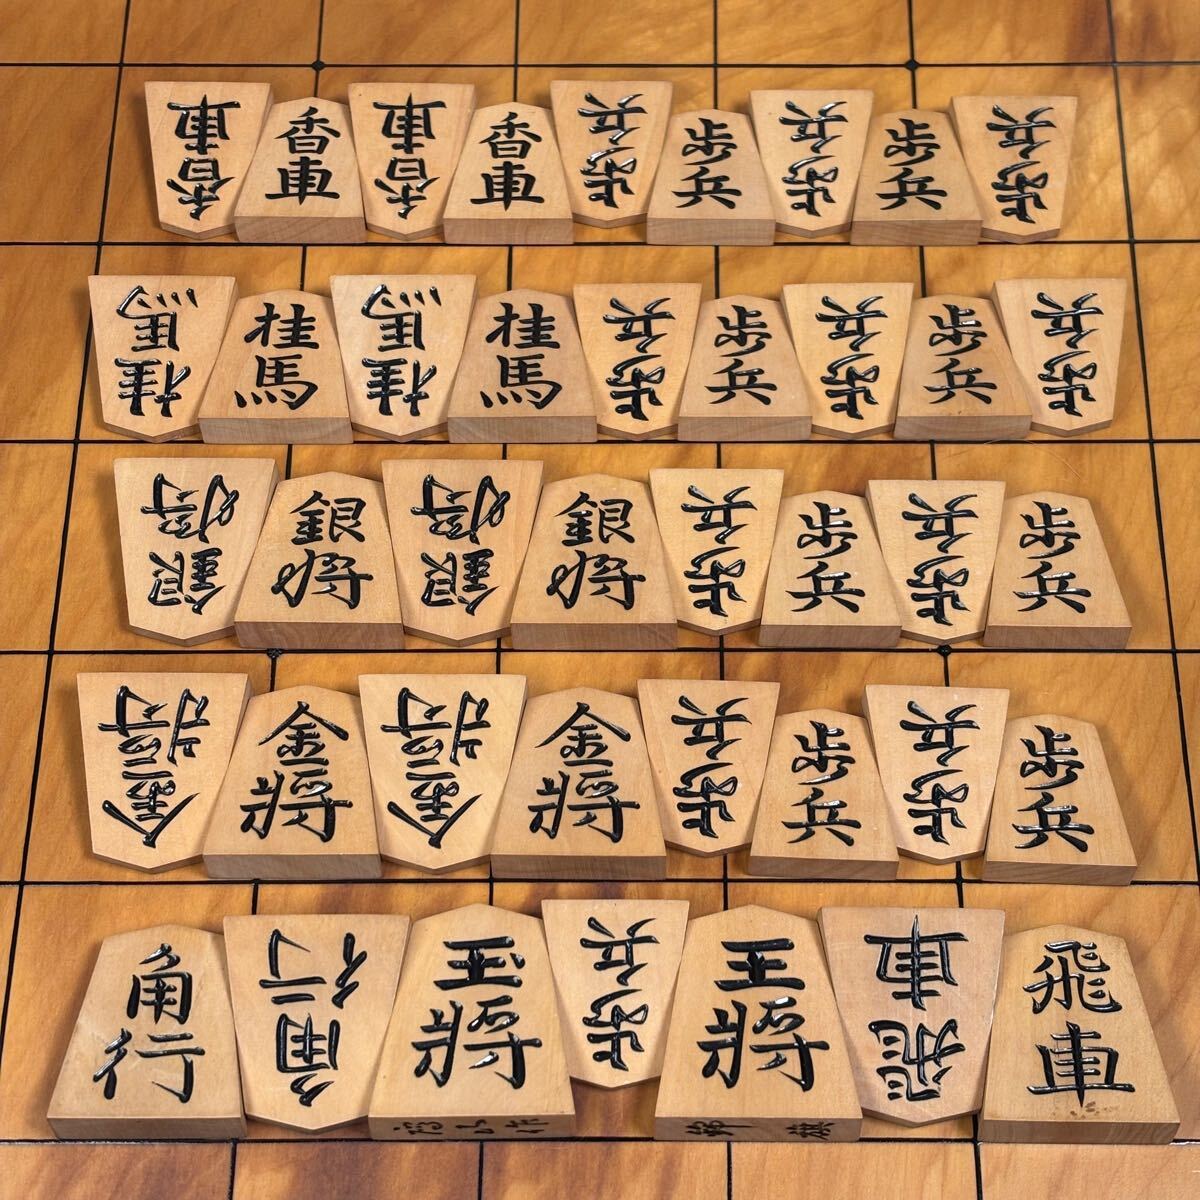 香車
香車
香車
香車
歩兵
歩兵
歩兵
歩兵
歩兵
桂馬
桂馬
桂馬
桂馬
歩兵
歩兵
歩兵
歩兵
歩兵
銀将
銀将
銀将
銀将
歩兵
歩兵
歩兵
歩兵
金將
金將
金將
金將
歩兵
歩兵
歩兵
歩兵
角行
角行
玉將
歩兵
王將
飛車
飛車
山作
錦旗